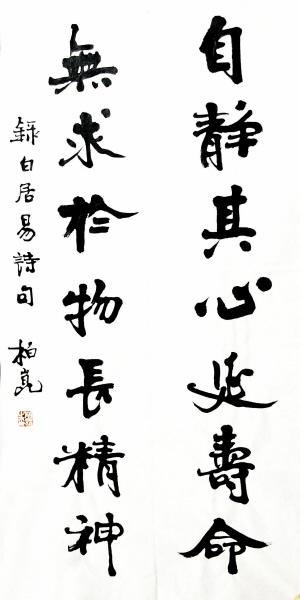 自靜其心延壽命
無求於物長精神
錄白居易詩句 柏嵬